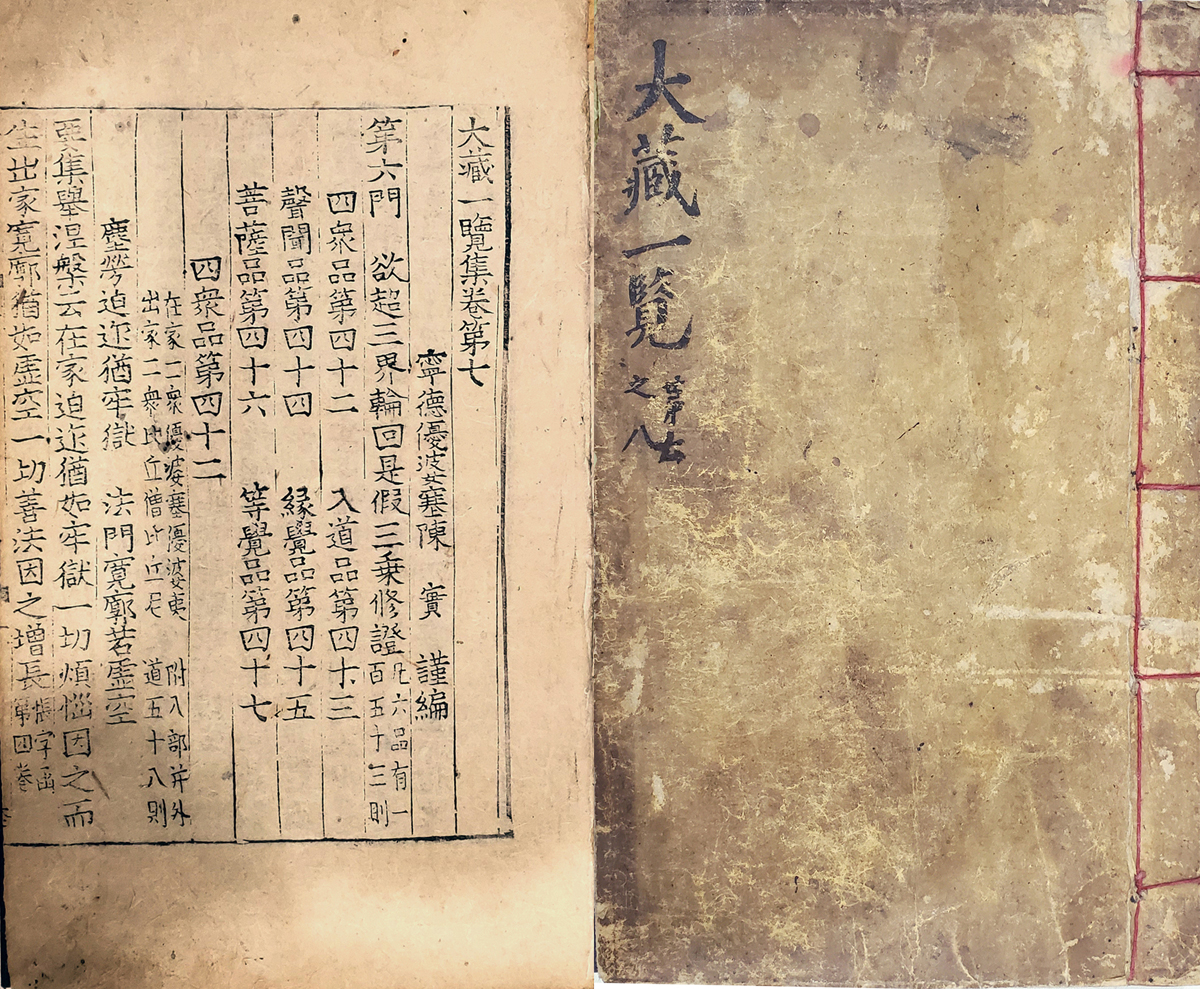 大藏一覽
苐七
之八
大藏一覽集卷第七
寧德優婆塞陳 實 謹編
第六門 欲超三界輪回是假三乗修證 凡六品有一百五十三則
四衆品第四十二 入道品第四十三
聲聞品第四十四 緣覺品第四十五
菩薩品第四十六 等覺品第四十七
四衆品第四十二
在家二衆優婆塞優婆夷 附八部并外
出家二衆比丘僧比丘尼 道五十八則
塵勞迫迮猶牢獄 法門寬廓若虛空
要集舉涅槃云在家迫迮猶如牢獄一切煩惱因之而
生出家寬廓猶如虛空一切善法因之增長 張字函第四卷